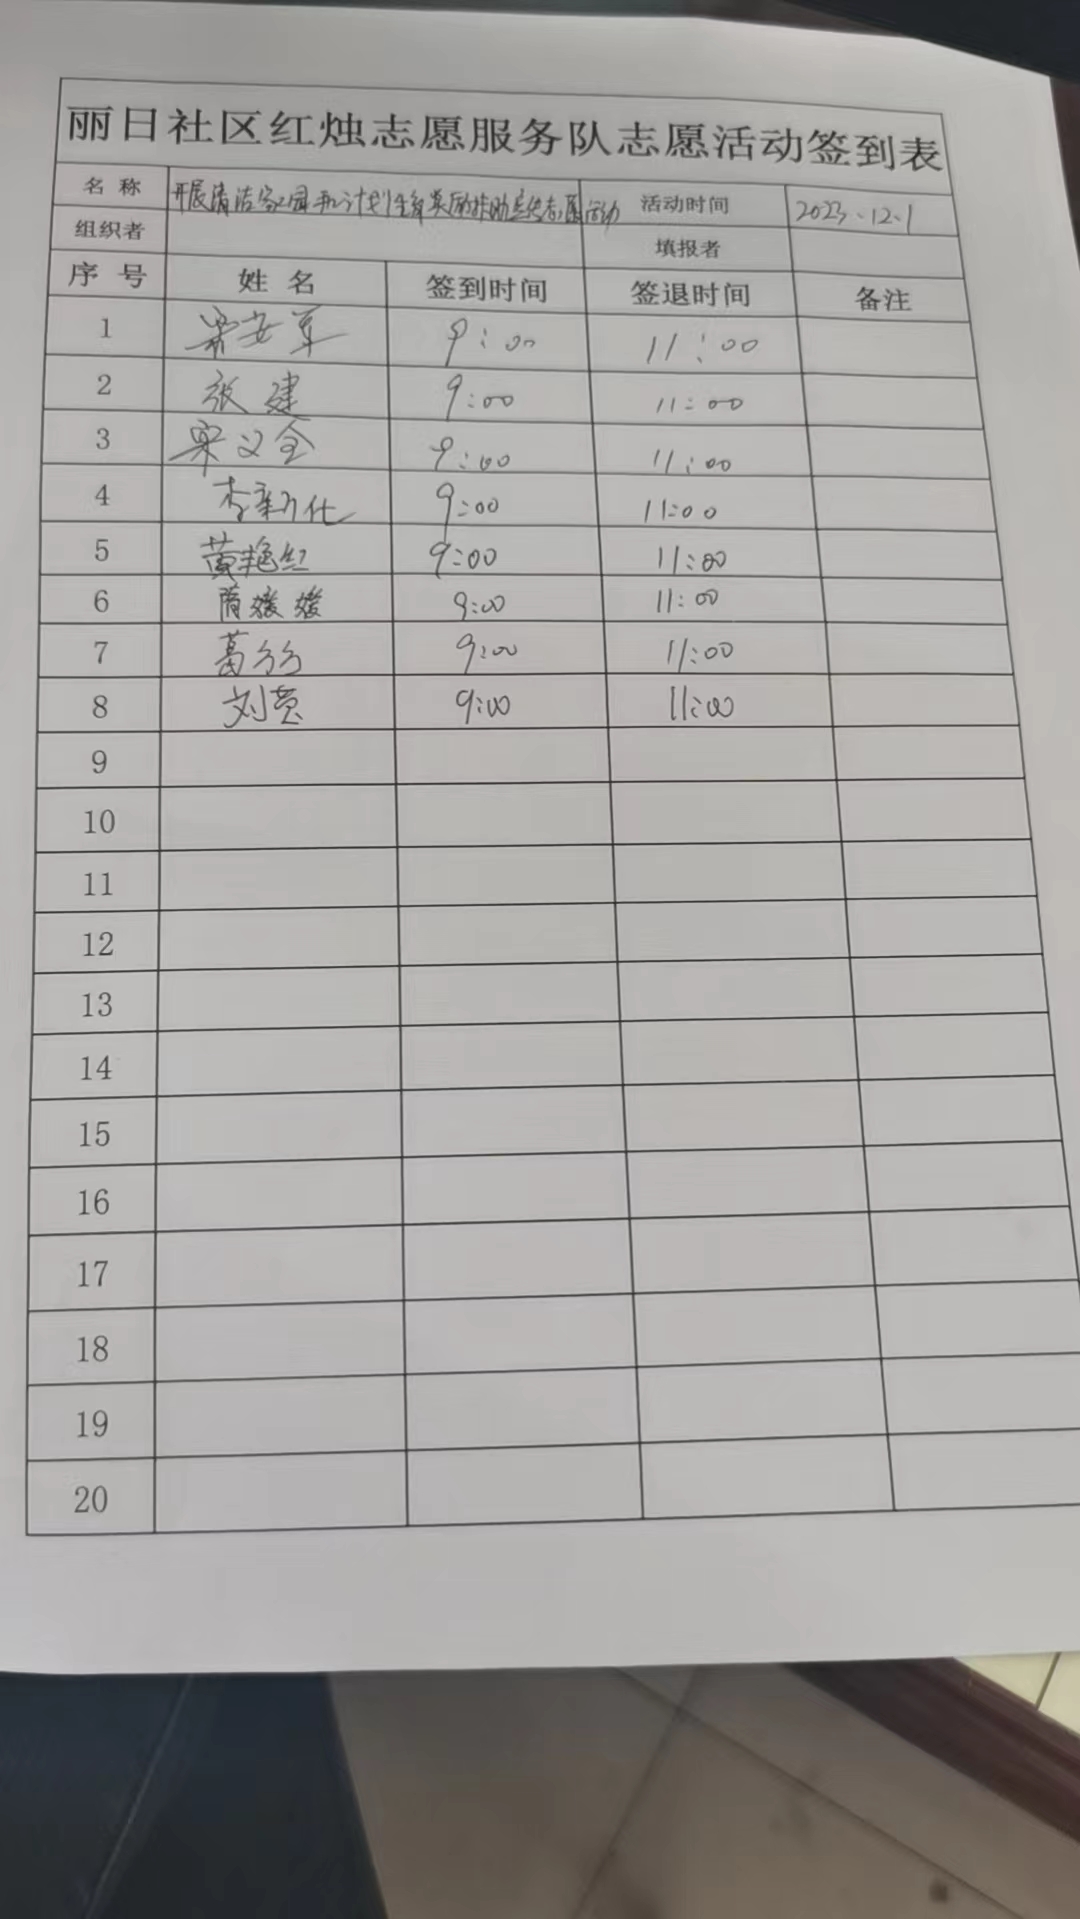 丽日社区红烛志愿服务队志愿活动签到表
名 称 开展清洁家园和计划生育奖励扶助宣传志愿活动 活动时间 2023.12.1
组织者 填报者
序 号 姓 名 签到时间 签退时间 备注
1 9:00 11:00
2 张建 9:00 11:00
3 梁义全 9:00 11:00
4 李新化 9:00 11:00
5 黄艳红 9:00 11:00
6 隋媛媛 9:00 11:00
7 葛 9:00 11:00
8 刘莹 9:00 11:00
9
10
11
12
13
14
15
16
17
18
19
20